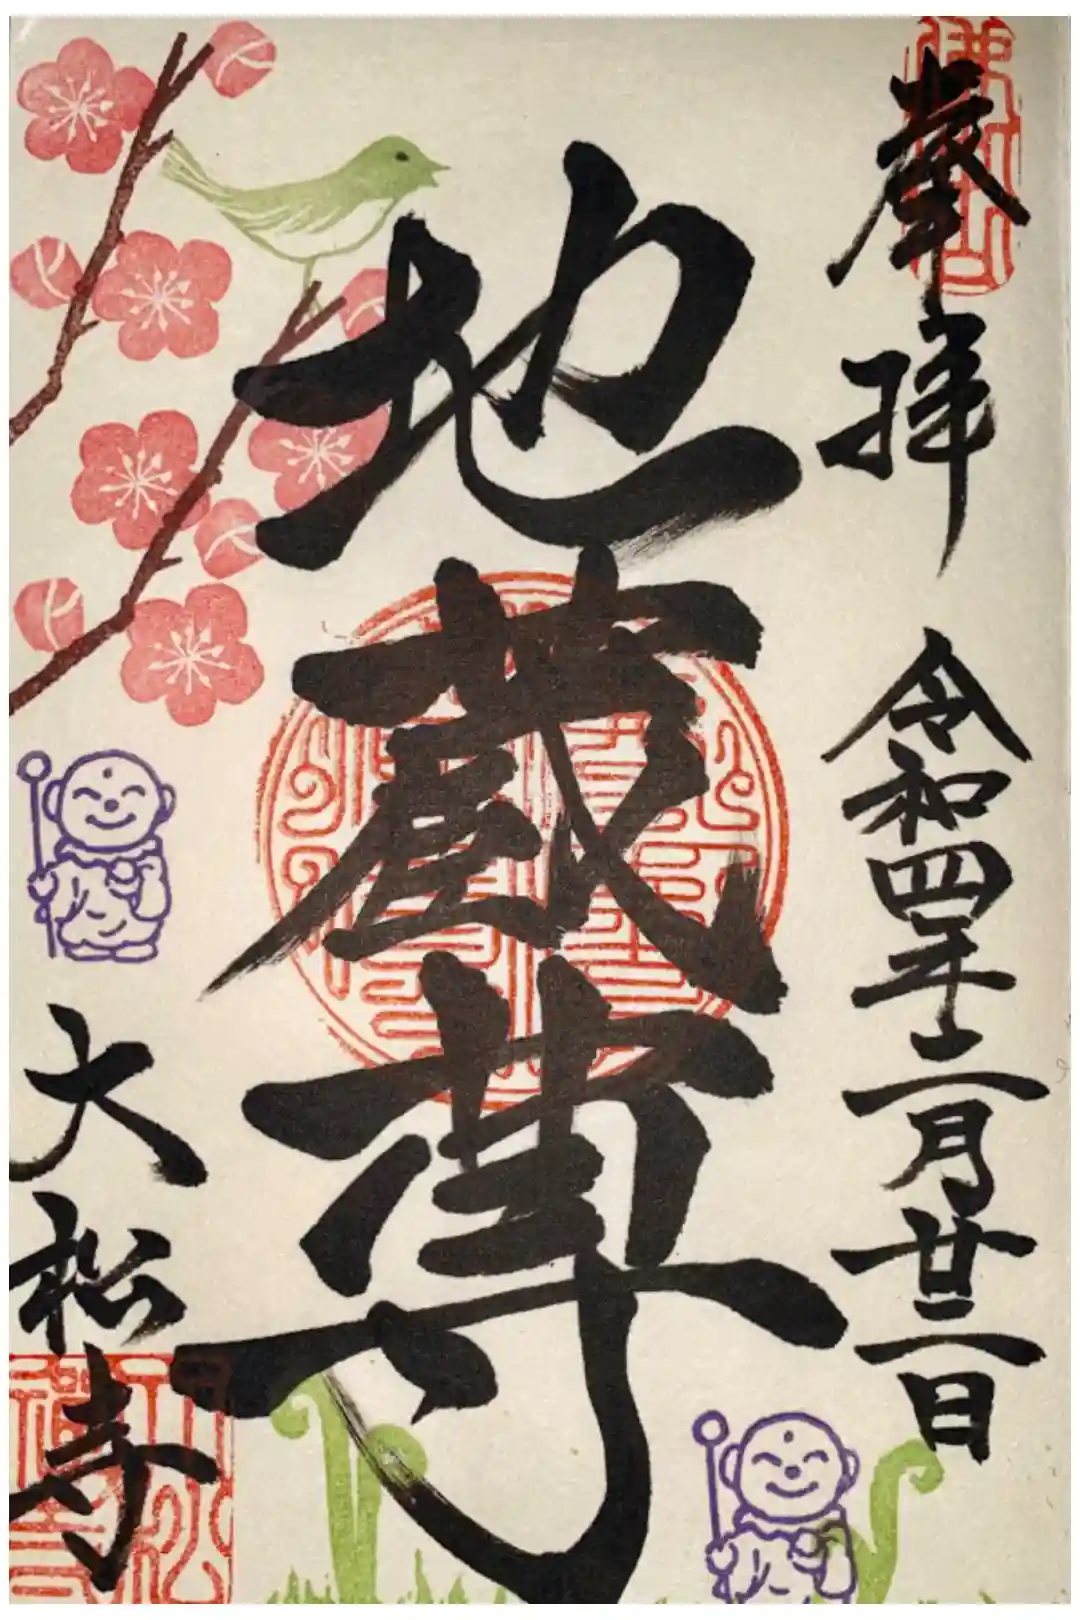 奉拝
令和四年二月廿二日
地蔵尊
大松寺